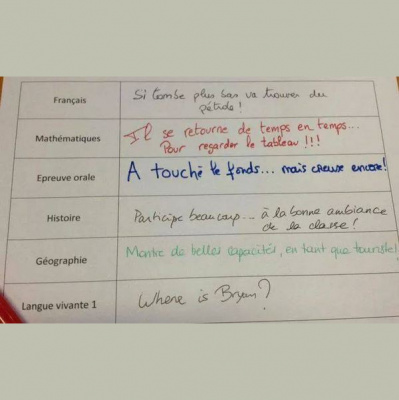 Français
Si tombe plus bas va trouver du
pétrole !
Mathématiques
Il se retourne de temps en temps...
Pour regarder le tableau !!!
Epreuve orale
A touché le fonds... mais creuse encore!
Histoire
Participe beaucoup... à la bonne ambiance
de la classe !
Géographie
Montre de belles capacités, en tant que touriste!
Langue vivante 1
Where is Bryan?